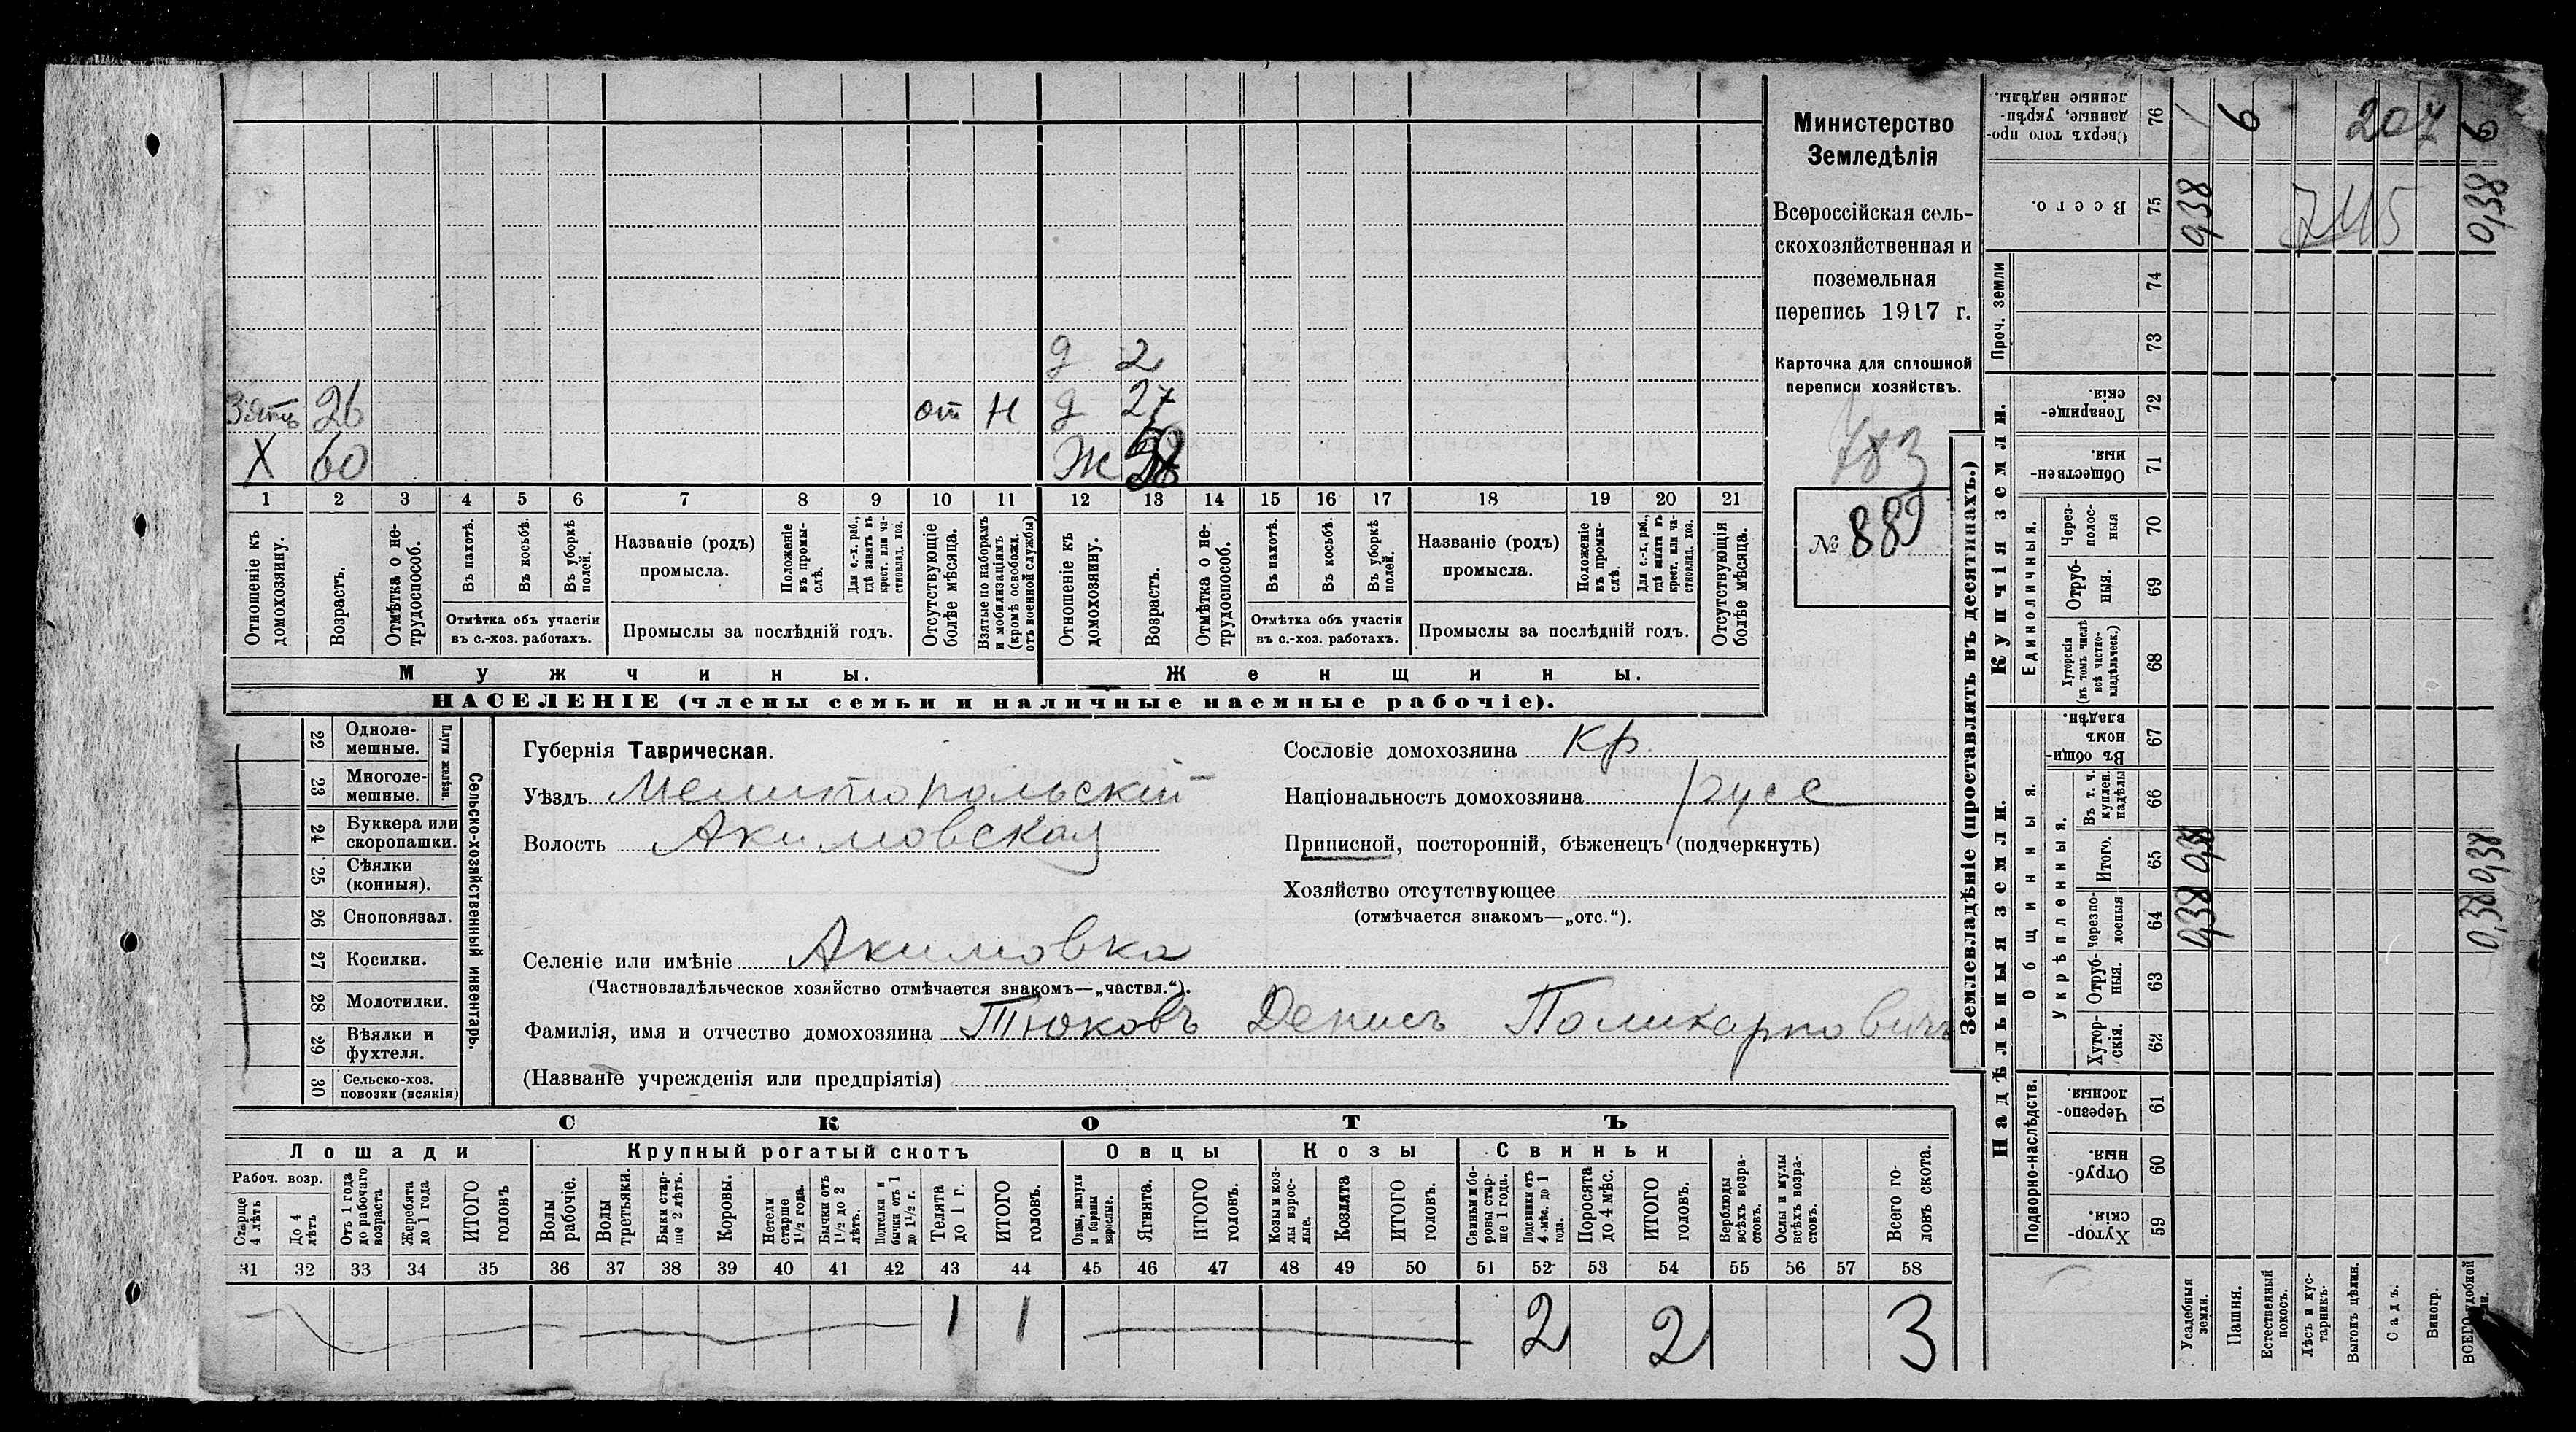 Министерство
Земледѣлія
Всероссійская сель-
скохозяйственная и
поземельная
перепись 1917 г.
Карточка для сплошной
переписи хозяйствъ.
783
№ 889
д 2
Зять 26 от Н д 27
Х 60 Ж
1 2 3 4 5 6 7 8 9 10 11 12 13 14 15 16 17 18 19 20 21
Отношеніе къ домохозяину.
Возрастъ.
Отмѣтка о не-трудоспособ.
Въ пахотѣ.
Въ косьбѣ.
Въ уборкѣ полей.
Отмѣтка объ участіи
въ с.-хоз. работахъ.
Названіе (родъ)
промысла.
Положеніе въ промы-слѣ.
Для с.-х. раб., гдѣ занятъ въ крест. или ча-стновлад. хоз.
Промыслы за послѣдній годъ.
Отсутствующіе болѣе мѣсяца.
Взятые по наборамъ и мобилизаціямъ (кромѣ освобожд. отъ военной службы)
Отношеніе къ домохозяину.
Возрастъ.
Отмѣтка о не-трудоспособ.
Въ пахотѣ.
Въ косьбѣ.
Въ уборкѣ полей.
Отмѣтка объ участіи
въ с.-хоз. работахъ.
Названіе (родъ)
промысла.
Положеніе въ промы-слѣ.
Для с.-х. раб., гдѣ занята въ крест. или ча-стновлад. хоз.
Промыслы за послѣдній годъ.
Отсутствующія болѣе мѣсяца.
Мужчины. Женщины.
НАСЕЛЕНІЕ (члены семьи и наличные наемные рабочіе).
22 Однолемешные.
23 Многолемешные.
Плуги желѣзн.
24 Буккера или скоропашки.
25 Сѣялки (конныя).
26 Сноповязал.
27 Косилки.
28 Молотилки.
29 Вѣялки и фухтеля.
30 Сельско-хоз. повозки (всякія)
Сельско-хозяйственный инвентарь.
Губернія Таврическая.
Уѣздъ Мелитопольскій
Волость Акимовская
Сословіе домохозяина кр.
Національность домохозяина русс
Приписной, посторонній, бѣженецъ (подчеркнуть)
Хозяйство отсутствующее
(отмѣчается знакомъ—„отс.“).
Селеніе или имѣніе Акимовка
(Частновладѣльческое хозяйство отмѣчается знакомъ—„частвл.“).
Фамилія, имя и отчество домохозяина Тюковъ Денисъ Поликарповичъ
(Названіе учрежденія или предпріятія)
СКОТЪ
Лошади Крупный рогатый скотъ Овцы Козы Свиньи
Рабоч. возр.
Старше 4 лѣтъ
До 4 лѣтъ
Отъ 1 года до рабочаго возраста
Жеребята до 1 года
ИТОГО головъ
Волы рабочіе.
Волы третьяки.
Быки стар-ше 2 лѣтъ.
Коровы.
Нетели старше 1½ года.
Бычки отъ 1½ до 2 лѣтъ.
Подтелки и бычки отъ 1 до 1½ г.
Телята до 1 г.
ИТОГО головъ.
Овцы, валухи и бараны взрослые.
Ягнята.
ИТОГО головъ.
Козы и коз-лы взрос-лые.
Козлята
ИТОГО головъ.
Свиньи и бо-ровы стар-ше 1 года.
Подсвинки отъ 4 мѣс. до 1 года.
Поросята до 4 мѣс.
ИТОГО головъ.
Верблюды всѣхъ возра-стовъ.
Ослы и мулы всѣхъ возра-стовъ.
Всего го-ловъ скота.
31 32 33 34 35 36 37 38 39 40 41 42 43 44 45 46 47 48 49 50 51 52 53 54 55 56 57 58
1 1 2 2 3
Землевладѣніе (проставлять въ десятинахъ.)
Надѣльныя земли. Купчія земли.
Подворно-наслѣдств.
Общинныя.
Укрѣпленныя.
Единоличныя.
Проч. земли
Сверхъ того про-данные, укрѣп-ленные надѣлы. 76
Всего. 75
74
73
Товарище-скія. 72
Обществен-ныя. 71
Через-полос-ныя 70
Отруб-ныя. 69
Хуторскія (въ томъ числѣ всѣ частно-владѣльческ.) 68
Въ общин-номъ владѣн. 67
Въ т. ч. куплен. надѣлы 66
Итого. 65
Черезпо-лосныя 64
Отруб-ныя. 63
Хутор-скія. 62
Черезпо-лосныя 61
Отруб-ныя. 60
Хутор-скія. 59
6 207 6
0,38 745 0,38
0,38 0,38
0,38 0,38
Усадебныя земли.
Пашня.
Естественный покосъ.
Лѣсъ и кус-тарникъ.
Выгонъ цѣлин.
Садъ.
Виногр.